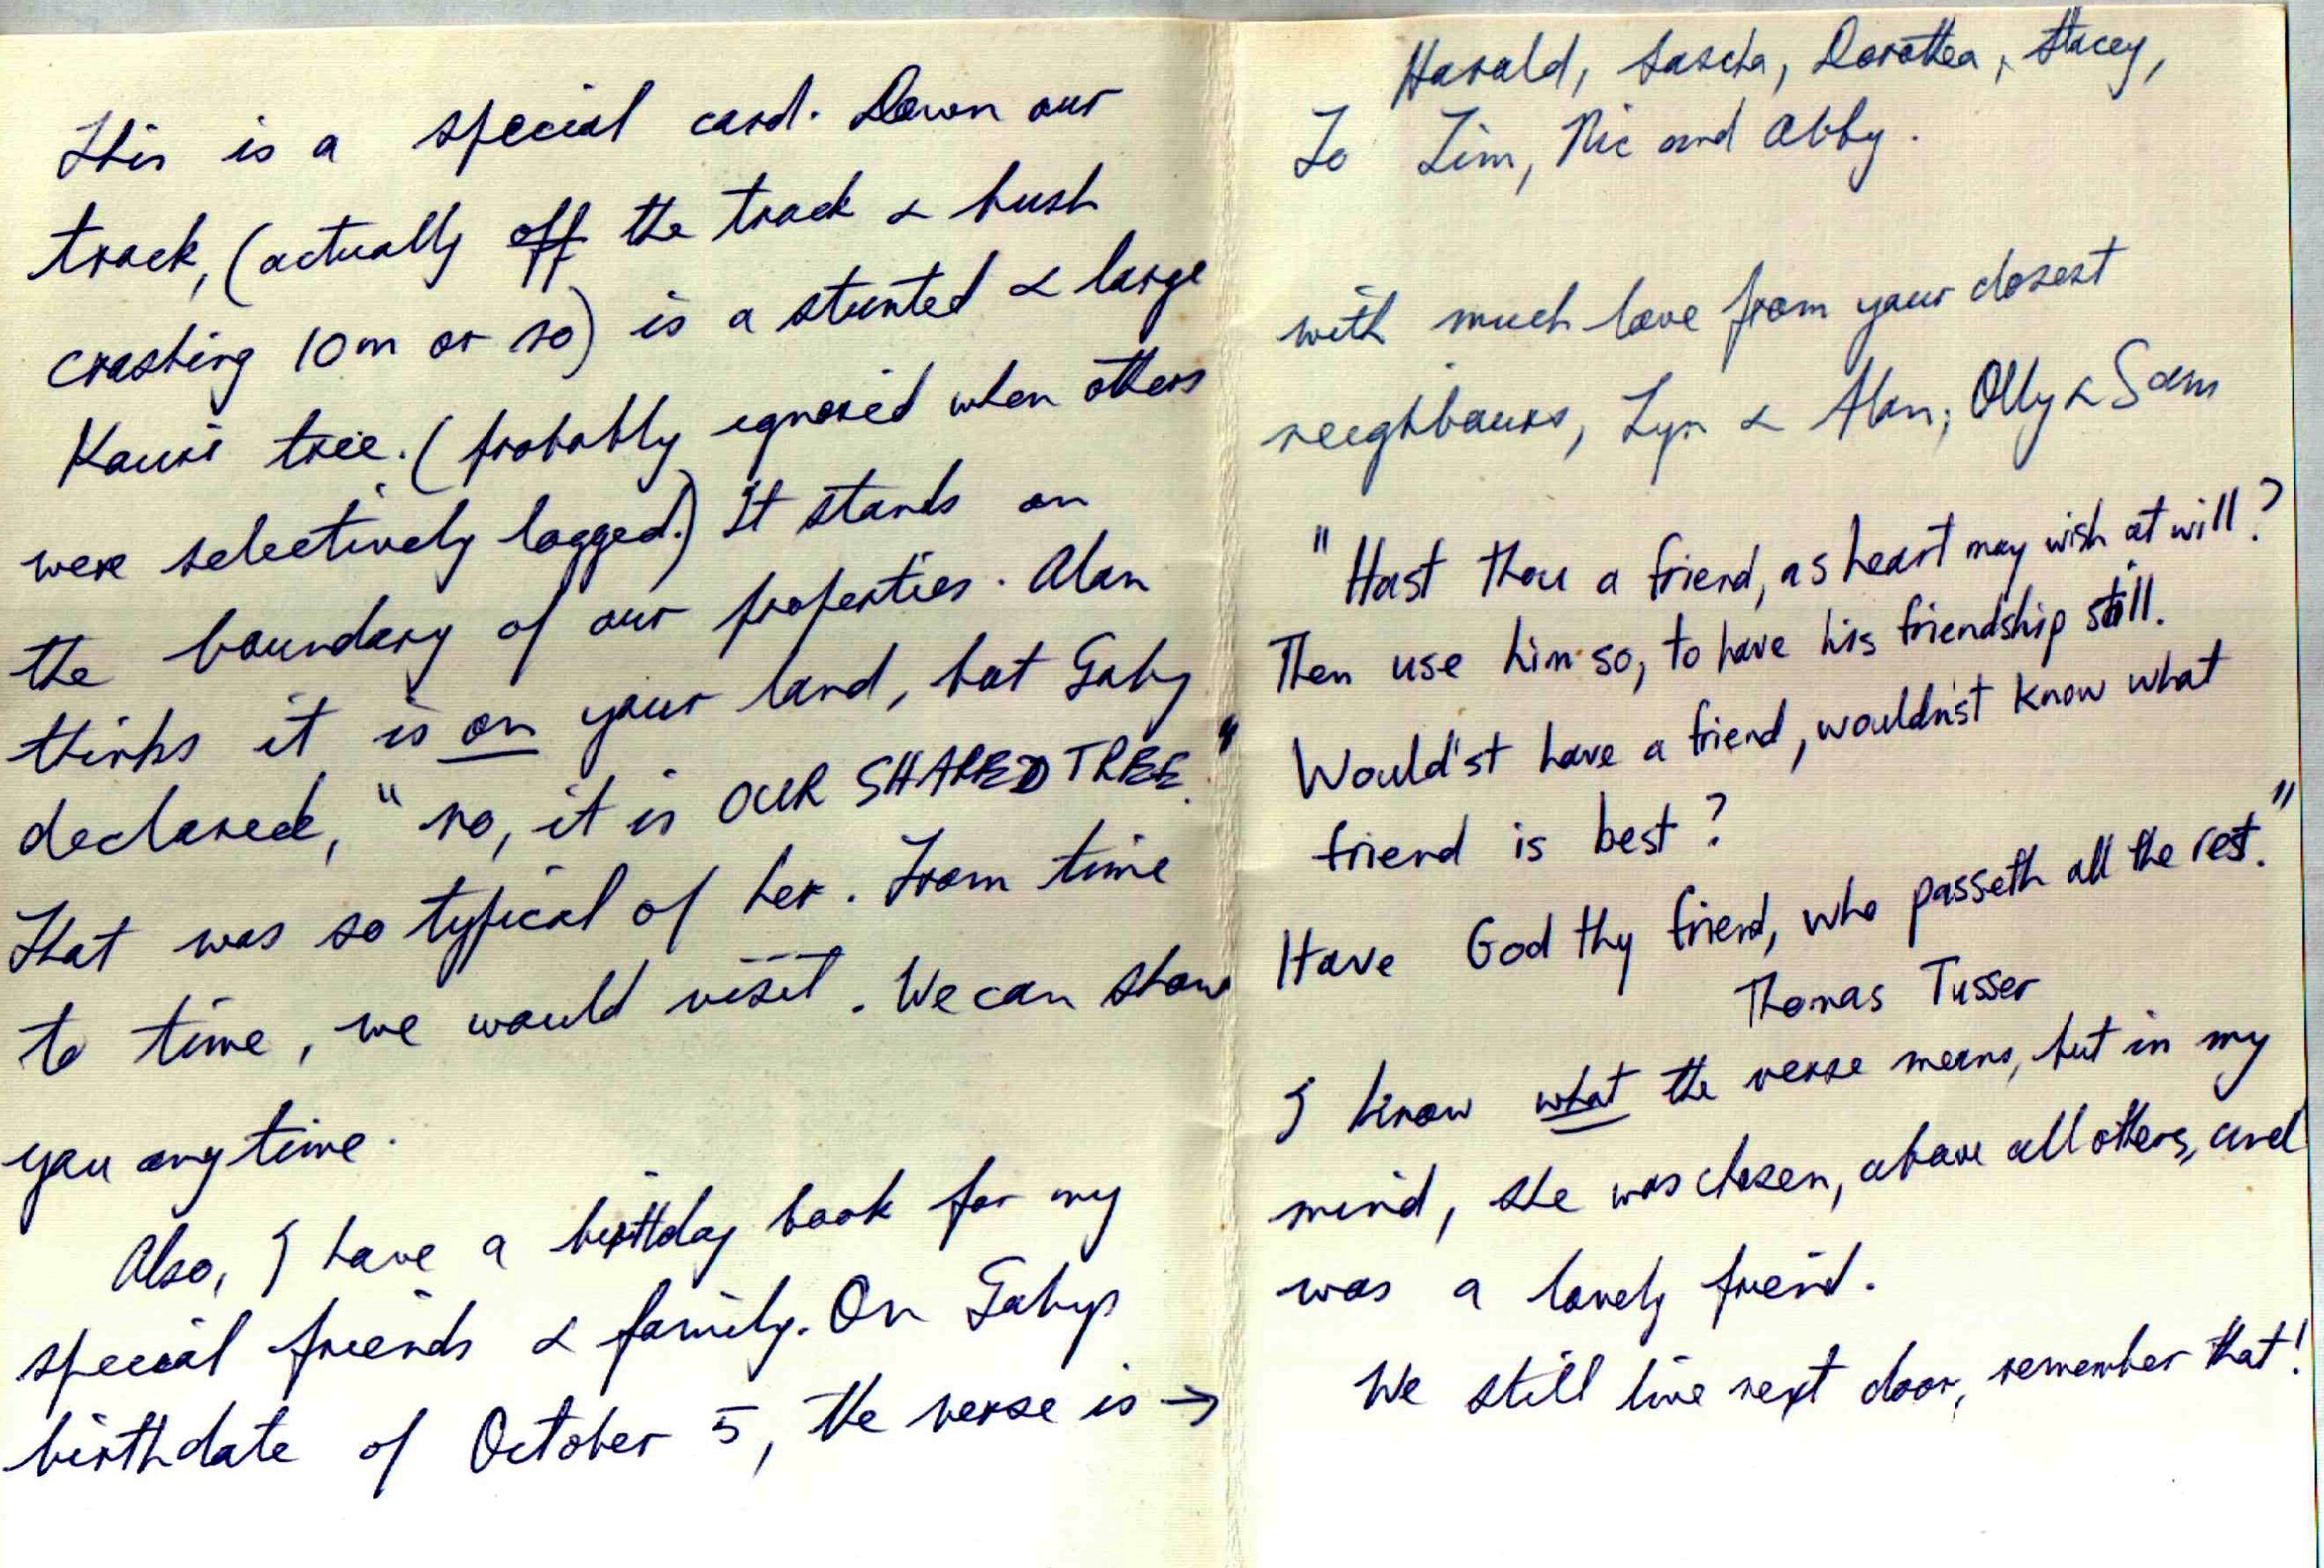 This is a special card. Down our
track, (actually off the track & bush
crashing 10m or so) is a stunted & large
Kauri tree. (probably ignored when others
were selectively logged.) It stands on
the boundary of our properties. Alan
thinks it is on your land, but Gaby
declared, "no, it is OUR SHARED TREE."
That was so typical of her. From time
to time, we would visit. We can show
you anytime.
Also, I have a birthday book for my
special friends & family. On Gabys
birthdate of October 5, the verse is →
Harald, Sascha, Dorothea, Stacey,
To Tim, Nic and Abby.
with much love from your closest
neighbours, Lyn & Alan, Olly & Sam
"Hast thou a friend, as heart may wish at will?
Then use him so, to have his friendship still.
Would'st have a friend, wouldn'st know what
friend is best?
Have God thy friend, who passeth all the rest."
Thomas Tusser
I know what the verse means, but in my
mind, she was chosen, above all others, and
was a lovely friend.
We still live next door, remember that!